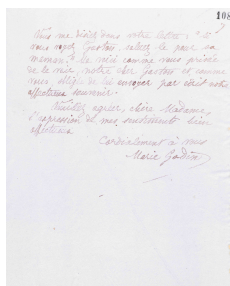 108
Vous me disiez dans votre lettre : "Si
vous voyez Gaston, saluez le pour sa
maman." Le voici comme nous privée
de le voir, notre cher Gaston et comme
vous obligée de lui envoyer par écrit notre
affectueux souvenir.
Veuillez agréer, chère Madame,
l'expression de mes sentiments bien
affectueux
Cordialement à vous
Marie